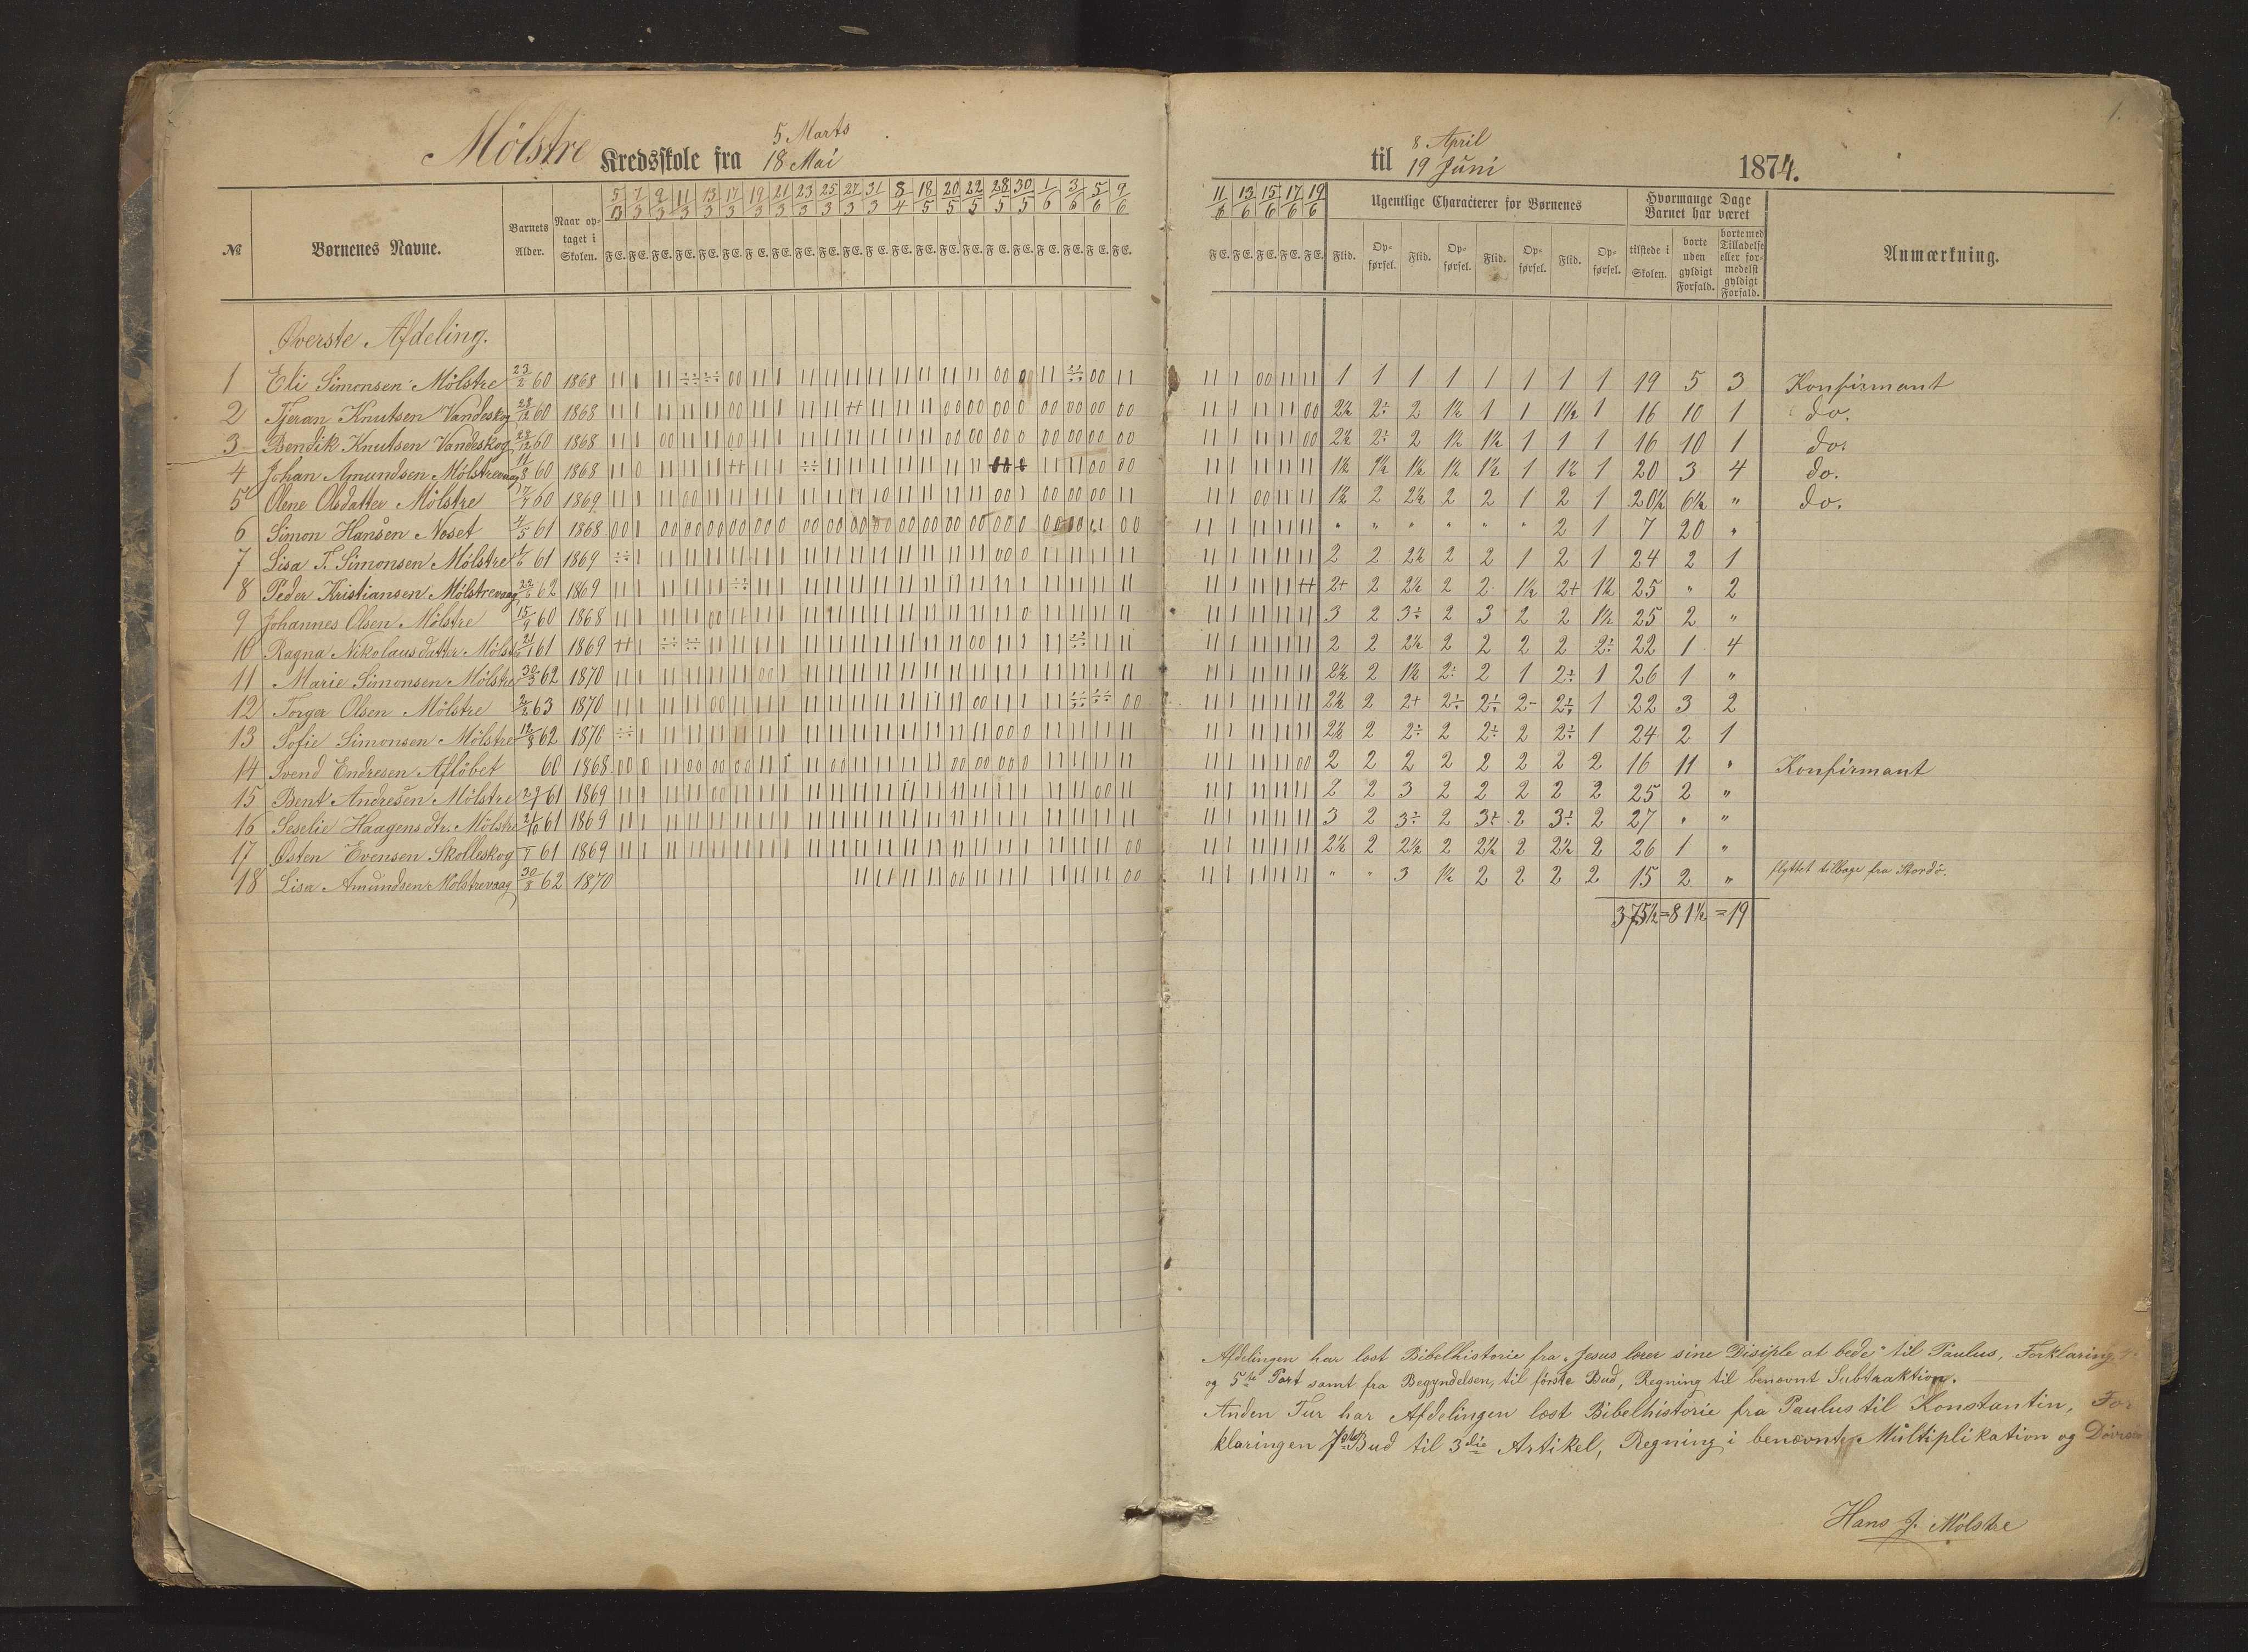 1.
Mölstre Kredsskole fra 5 Marts 18 Mai til 8 April 19 Juni 1874.
№ Børnenes Navne. Barnets Alder. Naar optaget i Skolen. 5/3 7/3 9/3 11/3 13/3 17/3 19/3 21/3 23/3 25/3 27/3 31/3 8/4 18/5 20/5 22/5 28/5 30/5 1/6 3/6 5/6 9/6 11/6 13/6 15/6 17/6 19/6 Ugentlige Characterer for Børnenes Hvormange Dage Barnet har været Anmærkning.
F E. F E. F E. F E. F E. F E. F E. F E. F E. F E. F E. F E. F E. F E. F E. F E. F E. F E. F E. F E. F E. F E. F E. F E. F E. F E. F E. Flid. Opførsel. Flid. Opførsel. Flid. Opførsel. Flid. Opførsel. tilstede i Skolen. borte uden gyldigt Forfald. borte med Tilladelse eller formedelst gyldigt Forfald.
Øverste Afdeling.
1 Eli Simonsen Mölstre 23/2 60 1868 1 1 1 1 1 1 1 1 19 5 3 Konfirmant
2 Tjeran Knutsen Vandeskog 28/12 60 1868 2½ 2÷ 2 1½ 1 1 1½ 1 16 10 1 do.
3 Bendik Knutsen Vandeskog 28/12 60 1868 2½ 2÷ 2 1½ 1½ 1 1 1 16 10 1 do.
4 Johan Amundsen Mölstrevaag 11/8 60 1868 1½ 1½ 1½ 1½ 1½ 1 1½ 1 20 3 4 do.
5 Olene Olsdatter Mölstre 60 1869 1½ 2 2½ 2 2 1 2 1 20½ 6½ " do.
6 Simon Hansen Noset 4/5 61 1868 " " " " " " 2 1 7 20 "
7 Lisa T. Simonsen Mölstre 61 1869 2 2 2½ 2 2 1 2 1 24 2 1
8 Peder Kristiansen Mölstrevaag 62 1869 2+ 2 2½ 2 2 1½ 2+ 1½ 25 " 2
9 Johannes Olsen Mölstre 15/9 60 1868 3 2 3÷ 2 3 2 2 1½ 25 2 "
10 Ragna Nikolausdatter Mölst 61 1869 2 2 2½ 2 2 2 2 2÷ 22 1 4
11 Marie Simonsen Mölstre 30/3 62 1870 2½ 2 1½ 2÷ 2 1 2÷ 1 26 1 "
12 Torger Olsen Mölstre 2/2 63 1870 2½ 2 2+ 2÷ 2÷ 2- 2÷ 1 22 3 2
13 Sofie Simonsen Mölstre 12/8 62 1870 2½ 2 2÷ 2 2÷ 2 2÷ 1 24 2 1
14 Svend Endresen Aflöbet 60 1868 2 2 2 2 2 2 2 2 16 11 " Konfirmant
15 Bent Andresen Mölstre 61 1869 2 2 3 2 2 2 2 2 25 2 "
16 Seselie Haagensdtr. Mölstre 21/10 61 1869 3 2 3÷ 2 3÷ 2 3÷ 2 27 " "
17 Østen Evensen Skolleskog 61 1869 2½ 2 2½ 2 2½ 2 2½ 2 26 1 "
18 Lisa Amundsen Mölstrevaag 30/8 62 1870 " " 3 1½ 2 2 2 2 15 2 " flyttet tilbage fra Stordö.
375½ = 81½ = 19
Afdelingen har læst Bibelhistorie fra „Jesus lærer sine Disiple at bede" til Paulus, Forklaring
og 5te Part samt fra Begyndelsen, til förste Bud, Regning til benævnt Subtraktion.
Anden Tur har Afdelingen læst Bibelhistorie fra Paulus til Konstantin, For
klaringen Bud til 3die Artikel, Regning i benævnte Multiplikation og Divisio
Hans J. Mölstre